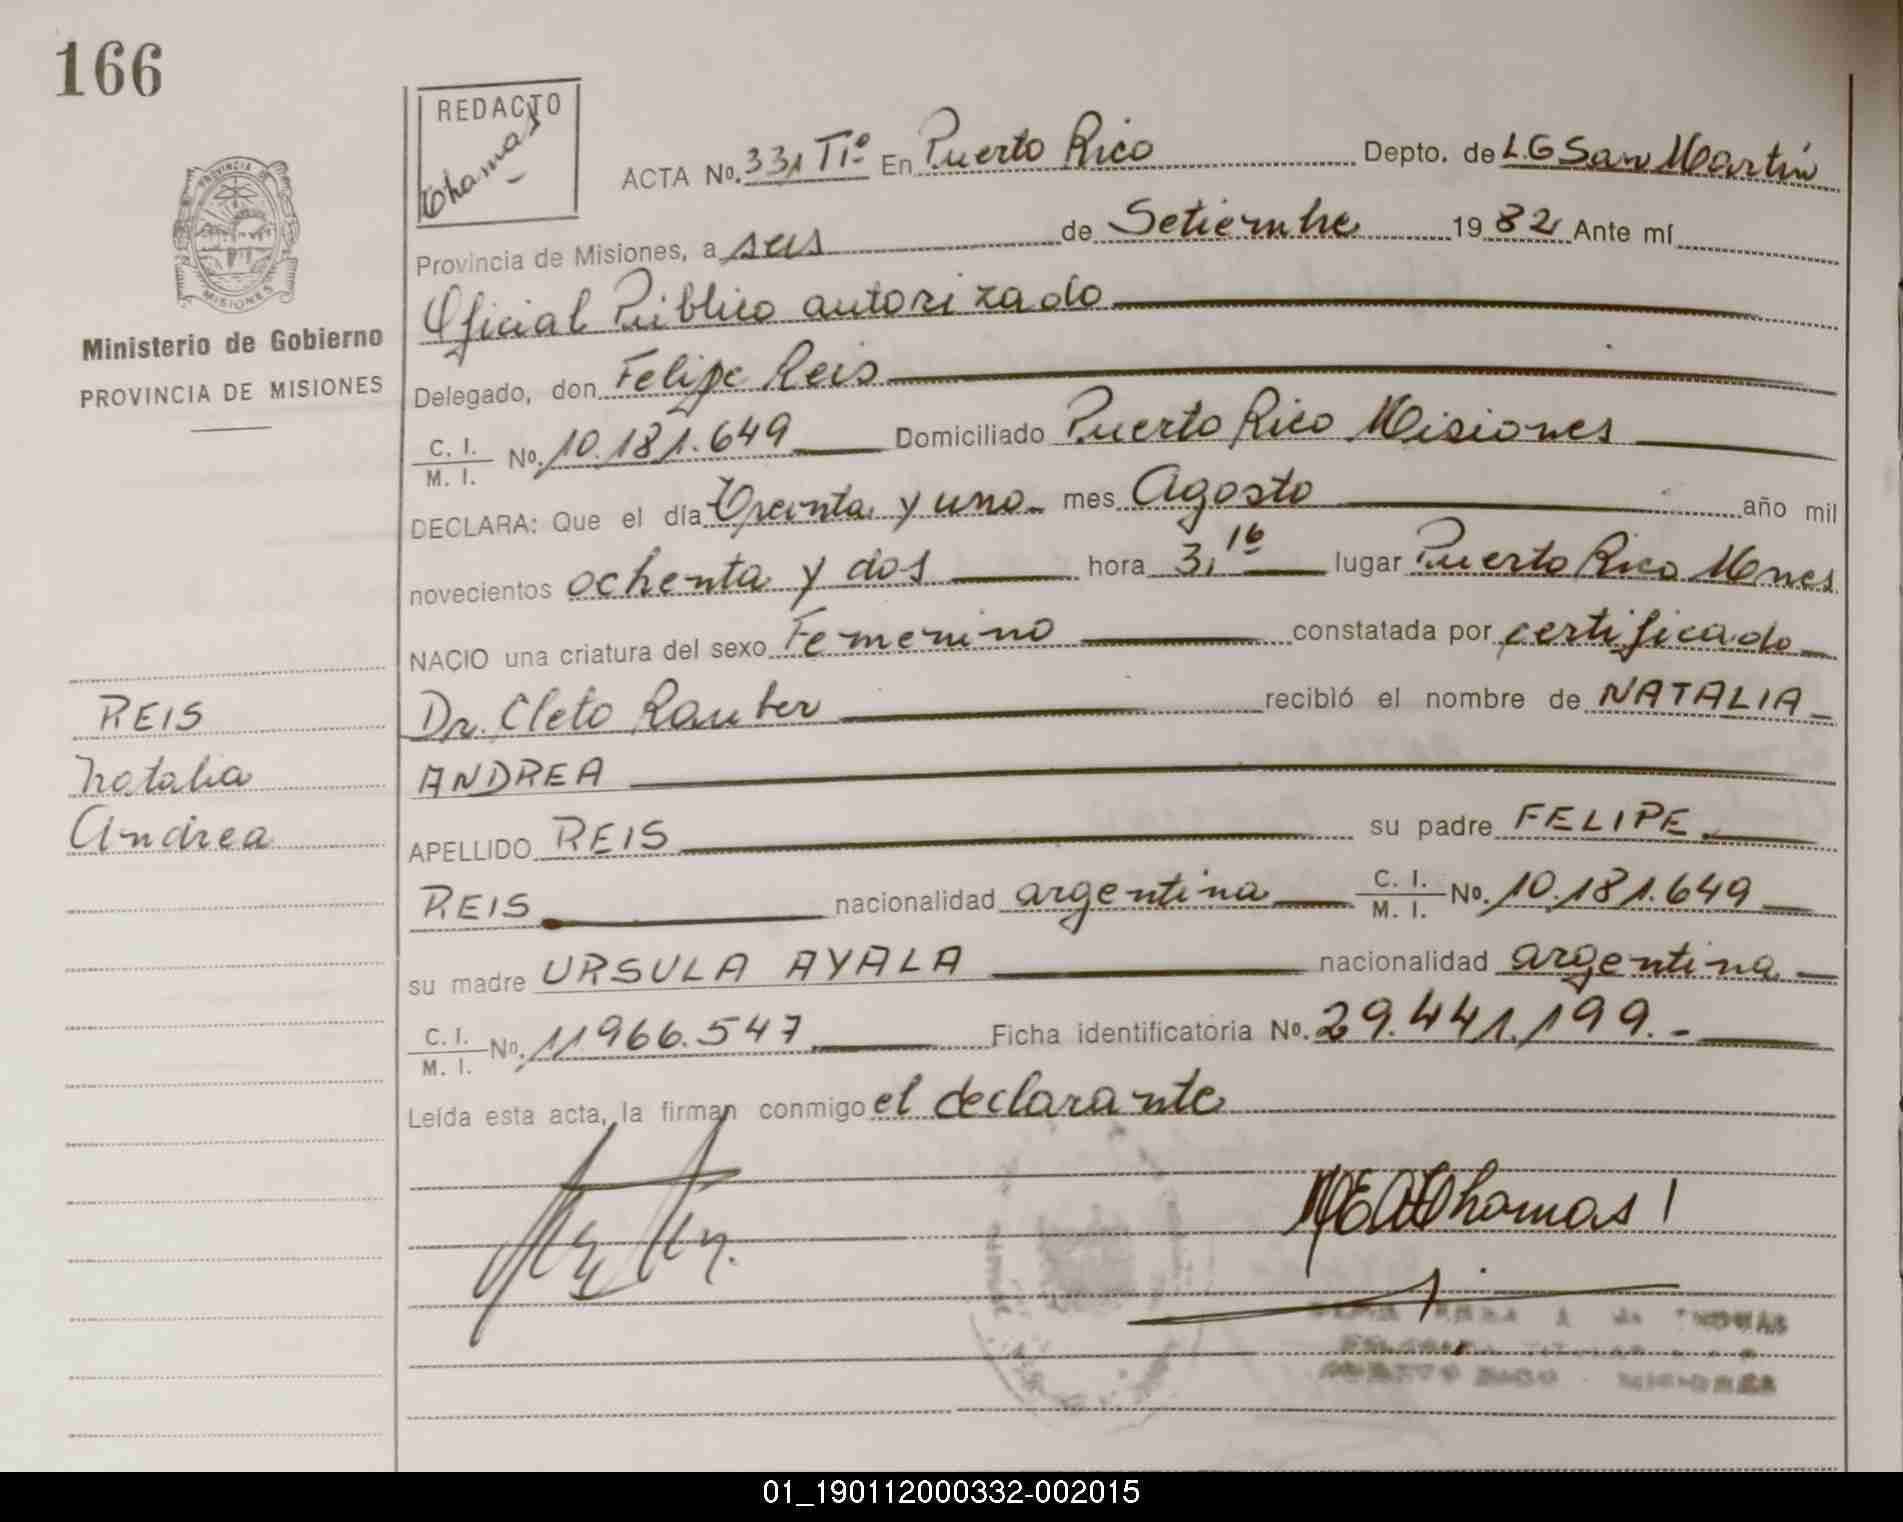 166
REDACTO
Thomas
PROVINCIA DE
MISIONES
Ministerio de Gobierno
PROVINCIA DE MISIONES
ACTA No. 331 Tº En Puerto Rico Depto. de L.G San Martín
Provincia de Misiones, a seis de Setiembre 1982 Ante mí
Oficial Público autorizado
Delegado, don Felipe Reis
C. I. M. I. No. 10.181.649 Domiciliado Puerto Rico Misiones
DECLARA: Que el día Treinta y uno mes Agosto año mil
novecientos ochenta y dos hora 3,10 lugar Puerto Rico Mnes
NACIO una criatura del sexo Femenino constatada por certificado
Dr. Cleto Rauber recibió el nombre de NATALIA
ANDREA
APELLIDO REIS su padre FELIPE
REIS nacionalidad argentina C. I. M. I. No. 10.181.649
su madre URSULA AYALA nacionalidad argentina
C. I. M. I. No. 11966.547 Ficha identificatoria No. 29.441.199.-
Leída esta acta, la firman conmigo el declarante
REIS
Natalia
Andrea
Thomas
THOMAS
PUERTO RICO - MISIONES
01_190112000332-002015